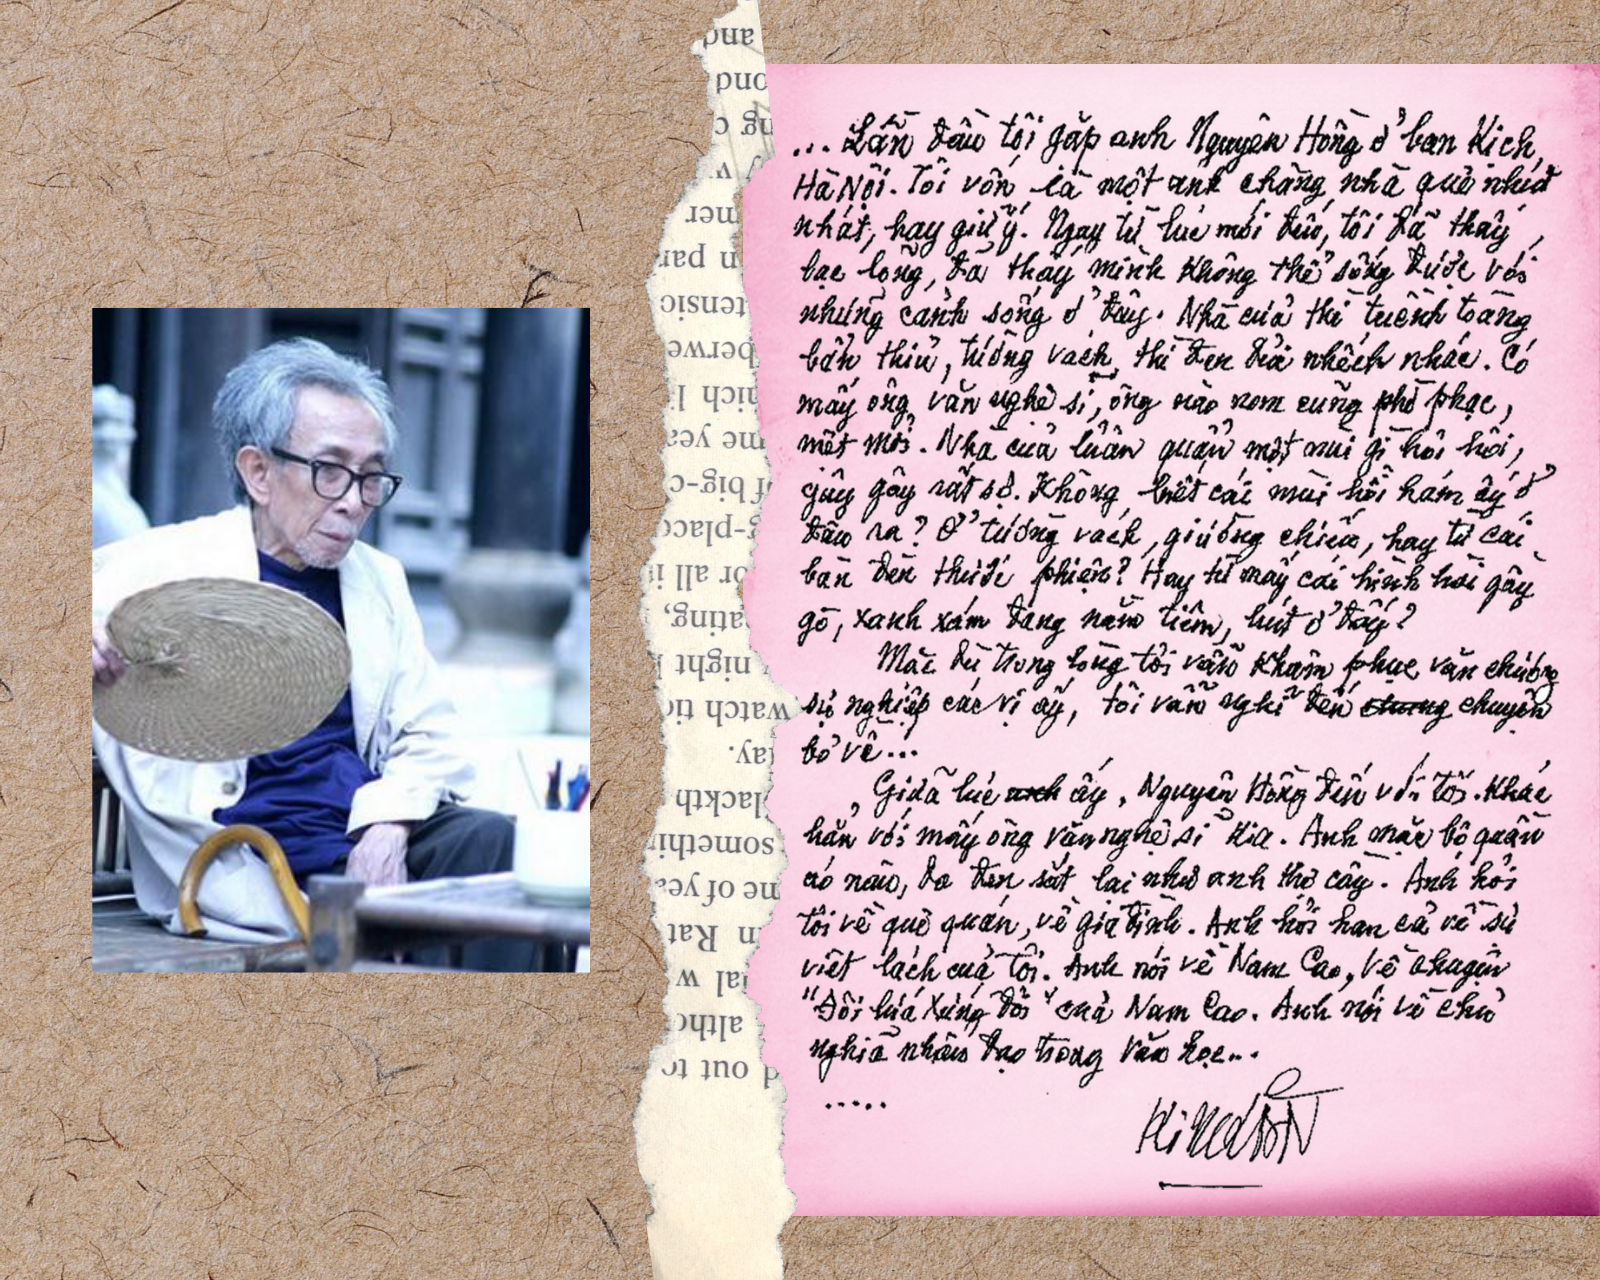 and
ond
ng c
y w
mer
in par
tensic
berwe
nich I
me yea
f big-c
g-place
or all i
eating,
night
watch tic
ay.
lackth
somethi
ne of yea
n Rat
ial w
altho
d out to
... Lần đầu tôi gặp anh Nguyên Hồng ở ban Kịch,
Hà Nội. Tôi vốn là một anh chàng nhà quê nhút
nhát, hay giữ ý. Ngay từ lúc mới đến, tôi đã thấy
bạc lòng, đã thấy mình không thể sống được với
những cảnh sống ở đây. Nhà cửa thì tuềnh toàng
bẩn thỉu, tường vách thì đen đủi nhếch nhác. Có
mấy ông văn nghệ sĩ, ông nào nom cũng phờ phạc,
mệt mỏi. Nhà cửa luẩn quẩn một mùi gì hôi hôi,
gây gây rất sợ. Không biết cái mùi hôi hám ấy ở
đâu ra? Ở tường vách, giường chiếu, hay từ cái
bàn đèn thuốc phiện? Hay từ mấy cái hình hài gầy
gò, xanh xám đang nằm tiêm, hút ở đấy?
Mặc dù trong lòng tôi vẫn khâm phục văn chương
sự nghiệp các vị ấy, tôi vẫn nghĩ đến chuyện
bỏ về...
Giữa lúc ấy, Nguyên Hồng đến với tôi. Khác
hẳn với mấy ông văn nghệ sĩ kia. Anh mặc bộ quần
áo nâu, da đen sắt lại như anh thợ cày. Anh hỏi
tôi về quê quán, về gia đình. Anh hỏi han cả về sự
viết lách của tôi. Anh nói về Nam Cao, về chuyện
"Đôi lứa xứng đôi" của Nam Cao. Anh nói về chủ
nghĩa nhân đạo trong văn học...
.....